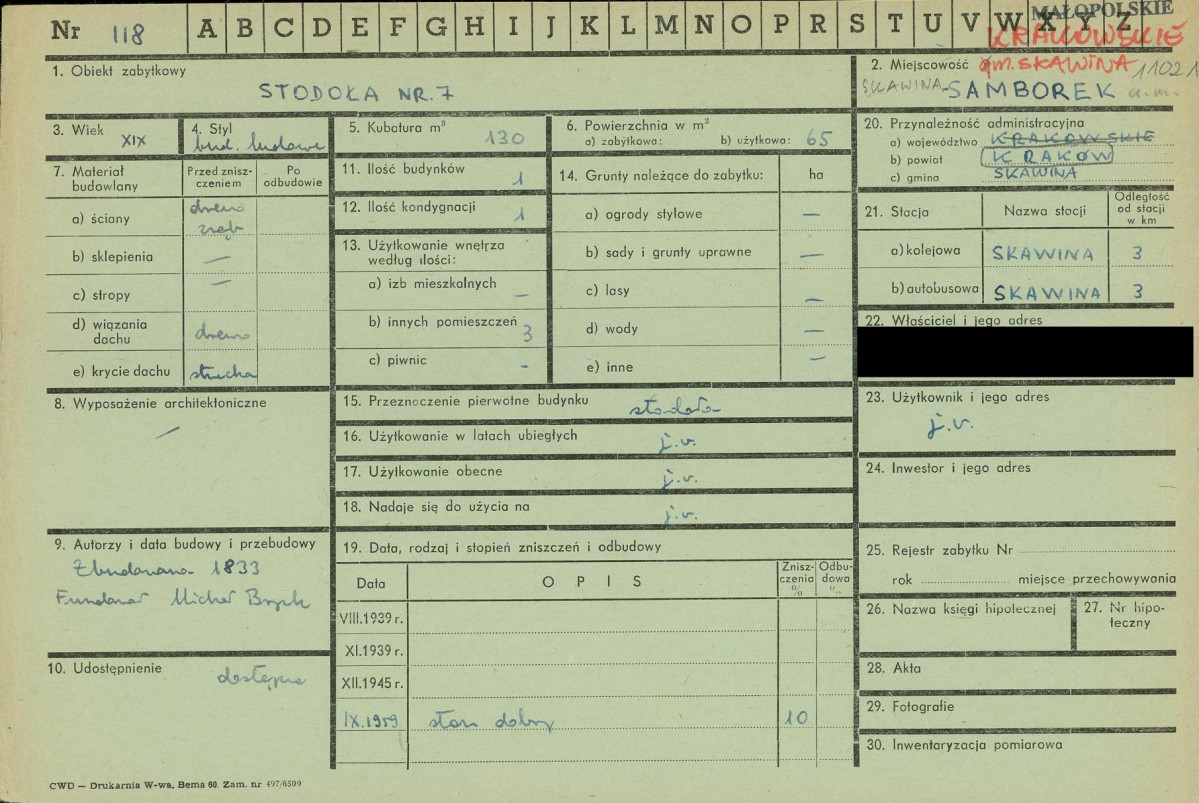 MAŁOPOLSKIE
Nr 118 A B C D E F G H I J K L M N O P R S T U V W X Y Z
KRAKOWSKIE
1. Obiekt zabytkowy
STODOŁA NR. 7
2. Miejscowość gm. SKAWINA 11021
SKAWINA - SAMBOREK
3. Wiek
XIX
4. Styl
bud. ludowe
5. Kubatura m³
130
6. Powierzchnia w m²
a) zabytkowa: b) użytkowa: 65
7. Materiał budowlany
Przed zniszczeniem
Po odbudowie
a) ściany drewno zrąb
b) sklepienia —
c) stropy —
d) wiązania dachu drewno
e) krycie dachu strzecha
8. Wyposażenie architektoniczne
—
9. Autorzy i data budowy i przebudowy
Zbudowana 1833
Fundował Michał
10. Udostępnienie
dostępna
11. Ilość budynków
1
12. Ilość kondygnacji
1
13. Użytkowanie wnętrza według ilości:
a) izb mieszkalnych —
b) innych pomieszczeń 3
c) piwnic -
14. Grunty należące do zabytku: ha
a) ogrody stylowe —
b) sady i grunty uprawne —
c) lasy —
d) wody —
e) inne —
15. Przeznoczenie pierwotne budynku stodoła
16. Użytkowanie w latach ubiegłych j.w.
17. Użytkowanie obecne j.w.
18. Nadaje się do użycia na j.w.
19. Data, rodzaj i stopień zniszczeń i odbudowy
Data OPIS Zniszczenia % Odbudowa %
VIII.1939 r.
XI.1939 r.
XII.1945 r.
IX.1959 stan dobry 10
20. Przynależność administracyjna
a) województwo KRAKOWSKIE
b) powiat KRAKÓW
c) gmina SKAWINA
21. Stacja Nazwa stocji Odległość od stacji w km
a) kolejowa SKAWINA 3
b) autobusowa SKAWINA 3
22. Właściciel i jego adres
23. Użytkownik i jego adres
j.w.
24. Inwestor i jego adres
25. Rejestr zabytku Nr
rok miejsce przechowywania
26. Nazwa księgi hipotecznej
27. Nr hipoteczny
28. Akta
29. Fotografie
30. Inwentaryzacja pomiarowa
CWD — Drukarnia W-wa, Bema 60. Zam. nr 497/6509